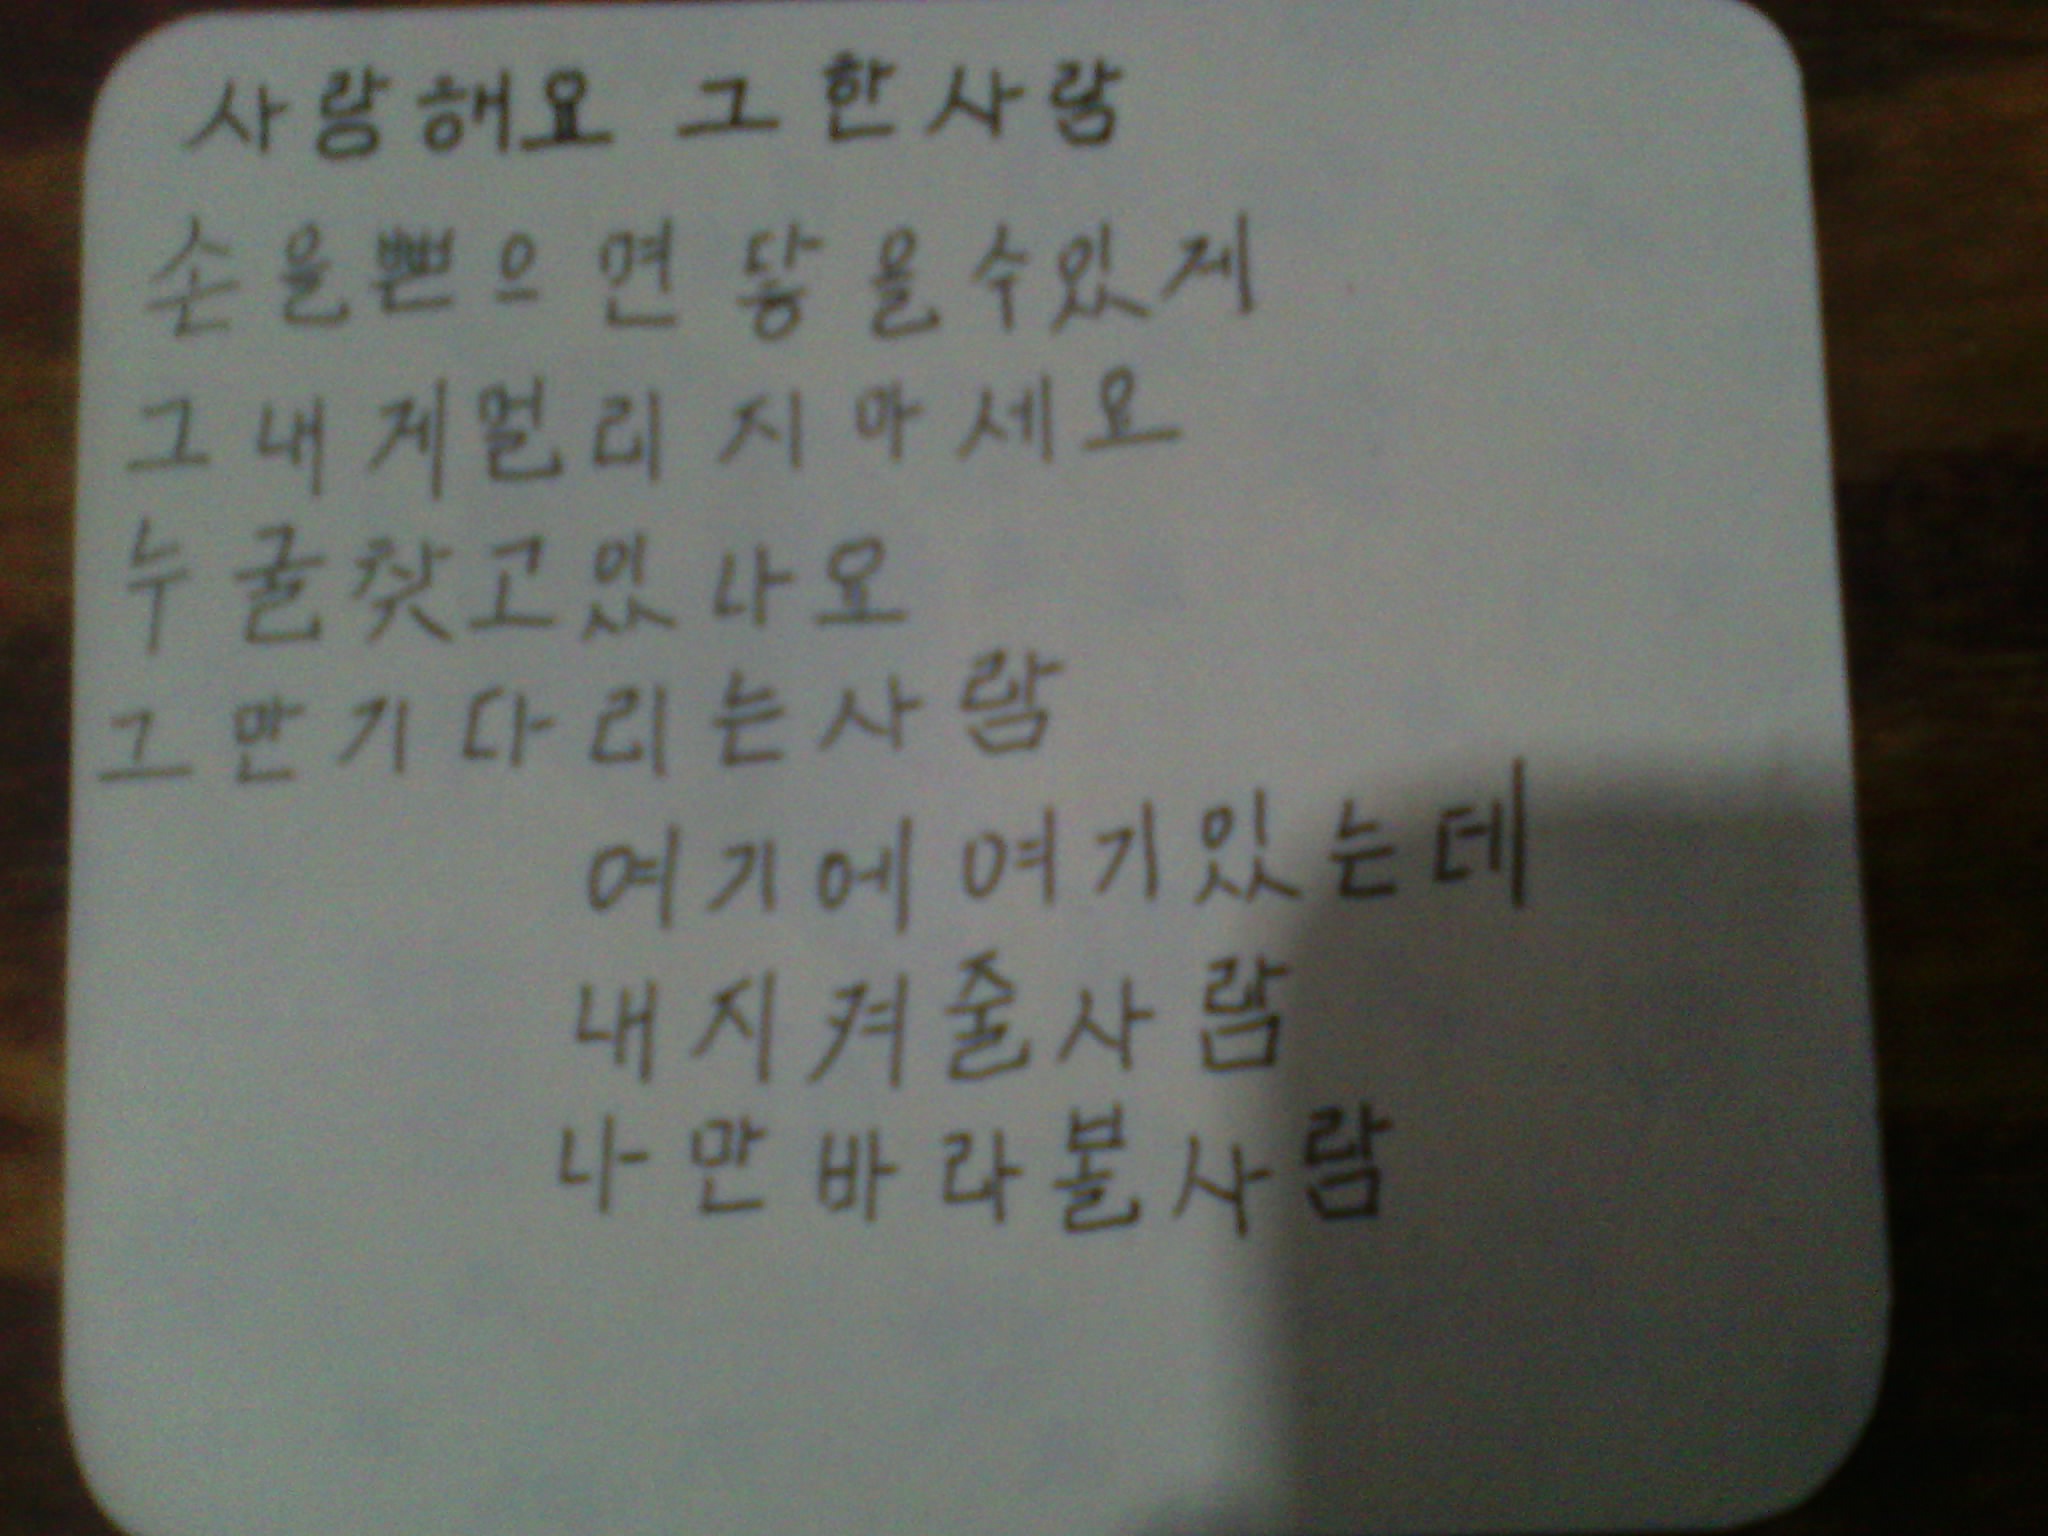 사랑해요 그 한사람
손을 뻗으면 닿을수있게
그 내게멀리 지마세요
누굴찾고있나요
그만기다리는사람
여기에 여기있는데
내지켜줄사람
나만바라볼사람